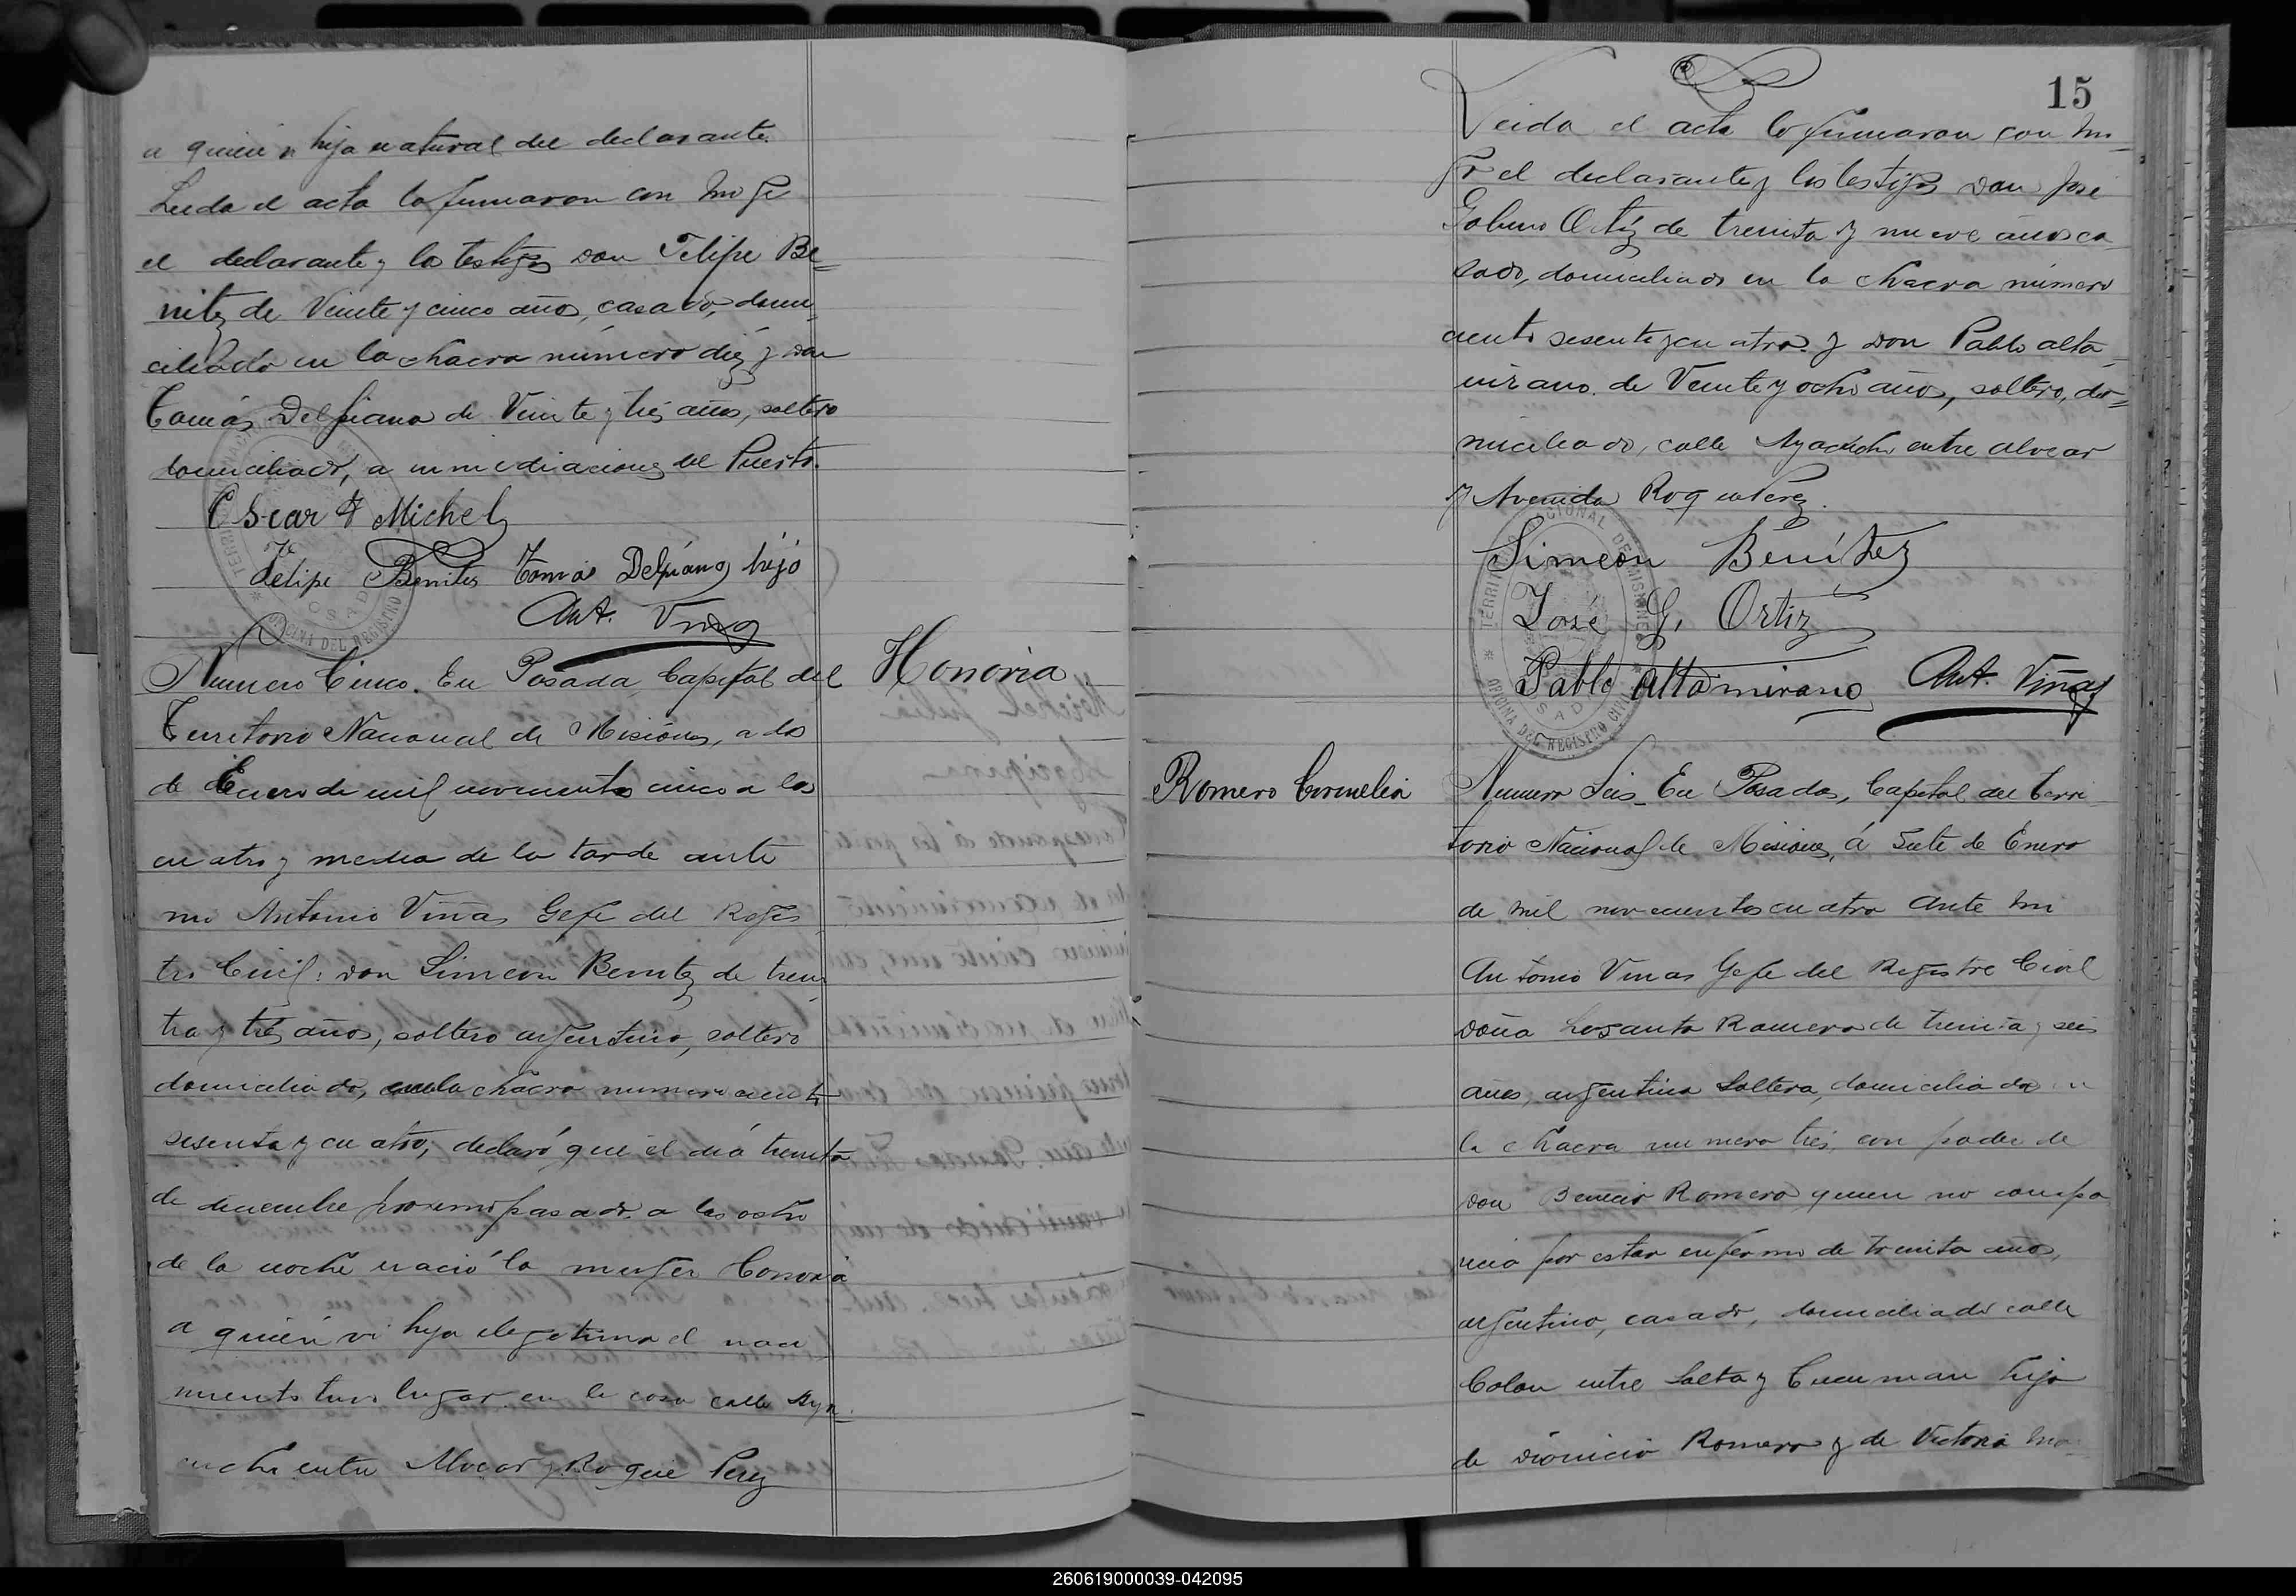 a quien vi hija natural del declarante.
Leida el acta la firmaron con migo
el declarante y los testigos don Felipe Be=
nitez de Veinte y cinco años, casado, domi
ciliado en la chacra número diez y don
Tomás Delpiano de Veinte y tres años, soltero
domiciliado, a inmediaciones del Puerto.
Oscar F Michel
Felipe Benites Tomás Delpiano hijo
Ant. Viñas
Numero Cinco. En Posadas Capital del
Honoria
Territorio Nacional de Misiones, a dos
de Enero de mil novecientos cinco a las
cuatro y media de la tarde ante
mi Antonio Viñas Gefe del Regis
tro Civil: don Simeon Benitez de trein
ta y tres años, soltero argentino, soltero
domiciliado, en la chacra numero ciento
sesenta y cuatro, declaró que el dia treinta
de diciembre proximo pasado a las ocho
de la noche nació la muger Honoria
a quien vi hija ilegitima el naci
miento tuvo lugar en la casa calle Aya=
cucho entre Alvear y Roque Perez
15
Leida el acta la firmaron con mi
go el declarante y los testigos don José
Gabino Ortiz de treinta y nueve años ca
sado, domiciliado en la chacra número
ciento sesenta y cuatro y don Pablo Alta
mirano de Veinte y ocho años, soltero, do=
miciliado, calle Ayacucho entre Alvear
y Avenida Roque Perez.
Simeon Benítez
José G. Ortiz
Pablo Altamirano Ant. Viñas
TERRITORIO NACIONAL DE MISIONES
OFICINA DEL REGISTRO CIVIL
POSADAS
Romero Cornelia
Numero Seis. En Posadas, Capital del Terri
torio Nacional de Misiones, á Siete de Enero
de mil novecientos cuatro Ante mi
Antonio Viñas Gefe del Registro Civil
doña Romero de treinta y seis
años, argentina Soltera, domiciliada en
la chacra numero tres, con poder de
don Romero quien no compa
recio por estar enfermo de treinta años,
argentino, casado, domiciliado calle
Colon entre Salta y Tucuman hijo
de Dionicio Romero y de Victoria
260619000039-042095